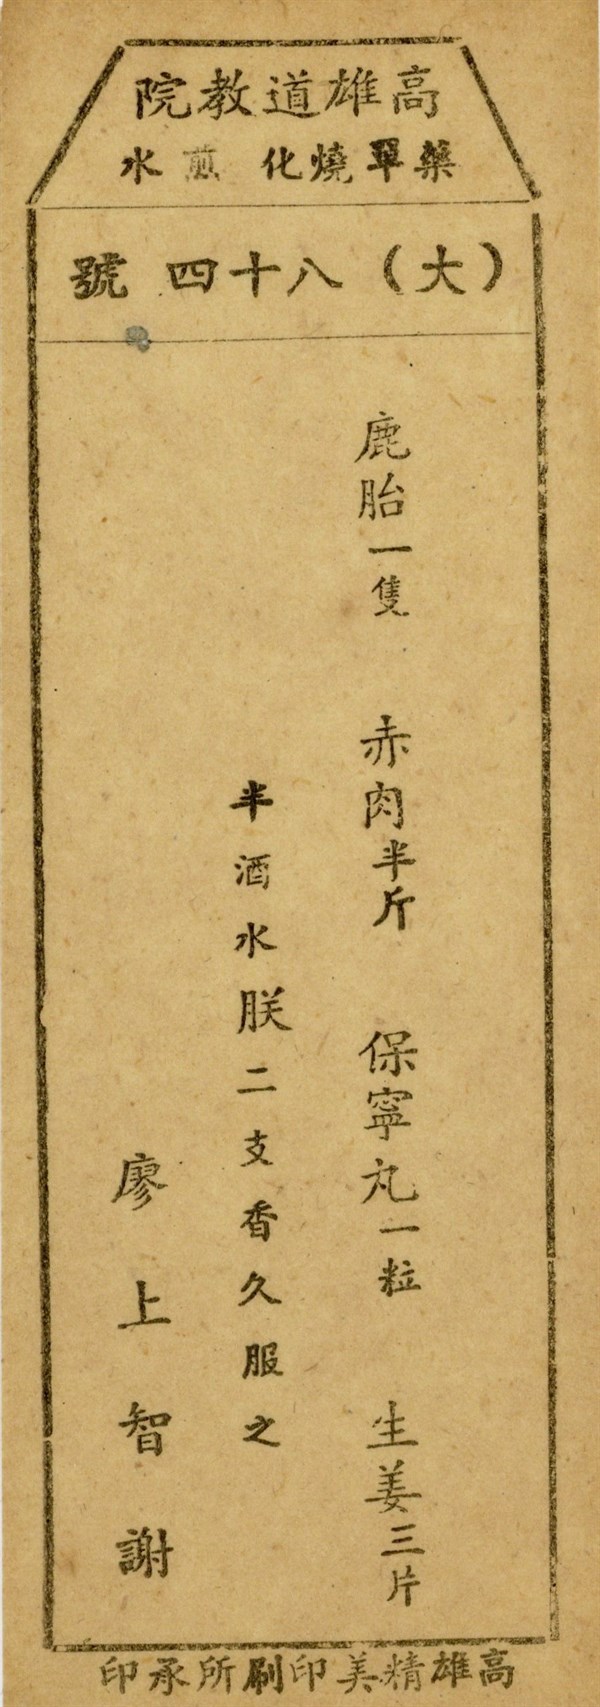 高雄道教院
藥單燒化煎水
（大）八十四號
鹿胎一隻 赤肉半斤 保寧丸一粒 生姜三片
半酒水朕二支香久服之
廖上智謝
高雄精美印刷所承印